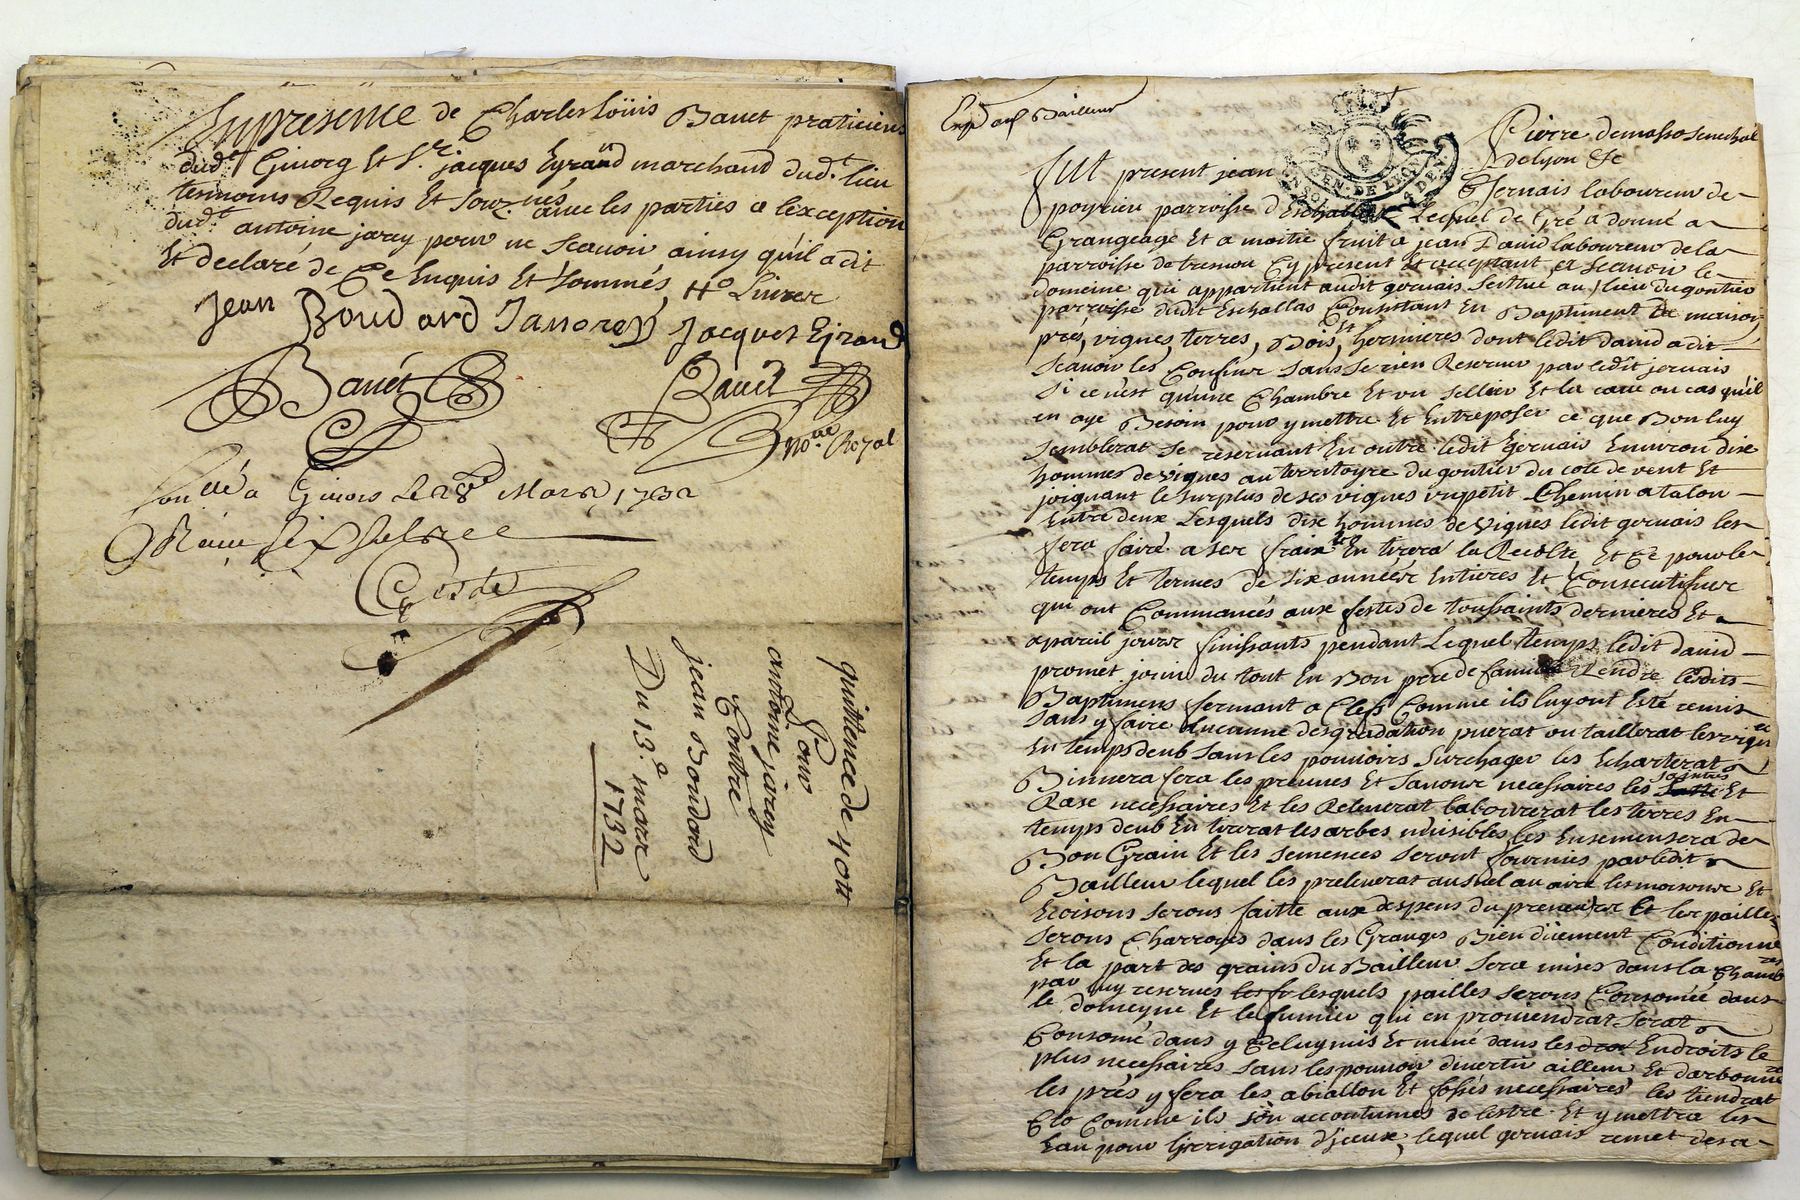 En presence de Charles Loüis Bauet praticiens
dud.t Giuorg Et S.r jacques Eyraud marchand dud.t lieu
temoins Requis Et Sousnés auec les parties a lexception
dud.t antoine jarey pour ne Scauoir ainsy quil a dit
Et declaré de Ce Enquis Et Sommés
Jean Boudard Jacques Eyraud
Bauet Bauet
no.re Royal
a Giuors Le 28 Mars 1732
Recu six
quittence de 40 tt
Pour
antoine jarey
Contre
jean Boudard
Du 13.e mars
1732
Exp. au Bailleur
Pierre demasso Senechal
de lyon &c
GEN. DE LYON
Fut present jean Geruais laboureur de
poyrieu parroisse d'Eschallas Lequel de Gré a donné a
Grangeage Et a moitie fruit a jean Dauid laboureur de la
parroisse de tresmou Cy present Et acceptant a Scauoir le
domeine qui appartient audit geruais Scitué au lieu du gontier
parroisse dudit Eschallas Consistant En Baptiment de maison,
prés, vignes, terres, Bois, Et hermieres dont ledit dauid a dit
Scauoir les Confins Sans Se rien Reseruer par ledit jeruais
Si ce n'est qu'une Chambre Et un Sellier Et la caue ou cas qu'il
en aye Besoin pour y mettre Et Entreposer ce que Bon luy
Semblerat Se reseruant En outre ledit Geruais Enuiron dixe
hommes de vignes au territoyre du gontier du coté de vent Et
joignant le surplus de ses vignes un petit Chemin a talon
Entre deux Lesquels dixe hommes de vignes ledit geruais les
fera faire a ses fraix Et En tirera la Recolte Et Ce pour le
temps Et termes de six années Entieres Et Consecutifues
qui ont Commancés aux festes de toussaints dernieres Et
a pareil jours finissants pendant Lequel temps ledit dauid
promet jouir du tout En Bon pere de famille Rendre lesdits
Baptimens fermant a Clefs Comme ils luy ont Esté remis
Sans y faire aucunne desgradation puerat ou taillerat les vignes
En temps deub Sans les pouuoirs Surchager les Echarterat
Binnera fera les preuues Et necessaires les Et
Rase necessaires Et les Releuerat labourerat les terres En
temps deub En tirerat les arbes nuisibles les Ensemensera de
Bon Grain Et les Semences Seront fournies par ledit
Bailleur lequel les preleuerat annuel au aire les moisons Et
Ecoisons Serons faitte aux despens du preneur Et les pailles
Serons Charroyes dans les Granges Bien düement Conditionné
Et la part des grains du Bailleur Sera mises dans la Chambres
par luy reserués lesquels pailles Serons Consomée dans
le domeyne Et le fumier qui en prouiendrat Serat
Consomé dans y Celuy mis Et mené dans les Endroits le
plus necessaires Sans les pouuoir diuertir ailleur Et
les prés y fera les abiallon Et fossés necessaires les tiendrat
Clo Comme ils Son accoutumés de lestre Et y mettra les
Eau pour Lirrigation d'jceux, lequel geruais remet des a